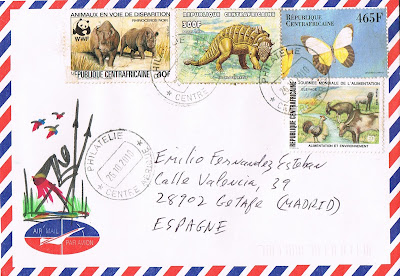 ANIMAUX EN VOIE DE DISPARITION
WWF
RÉPUBLIQUE CENTRAFRICAINE
RÉPUBLIQUE CENTRAFRICAINE
RÉPUBLIQUE
CENTRAFRICAINE
465F
JOURNÉE MONDIALE DE L'ALIMENTATION
ELEVAGE
RÉPUBLIQUE CENTRAFRICAINE
ALIMENTATION ET ENVIRONNEMENT
CENTRE
PHILATELIE
PHILATELIE
Emilio Fernandez Esteban
Calle Valencia, 39
28902 GETAFE (MADRID)
ESPAGNE
AIR MAIL
PAR AVION